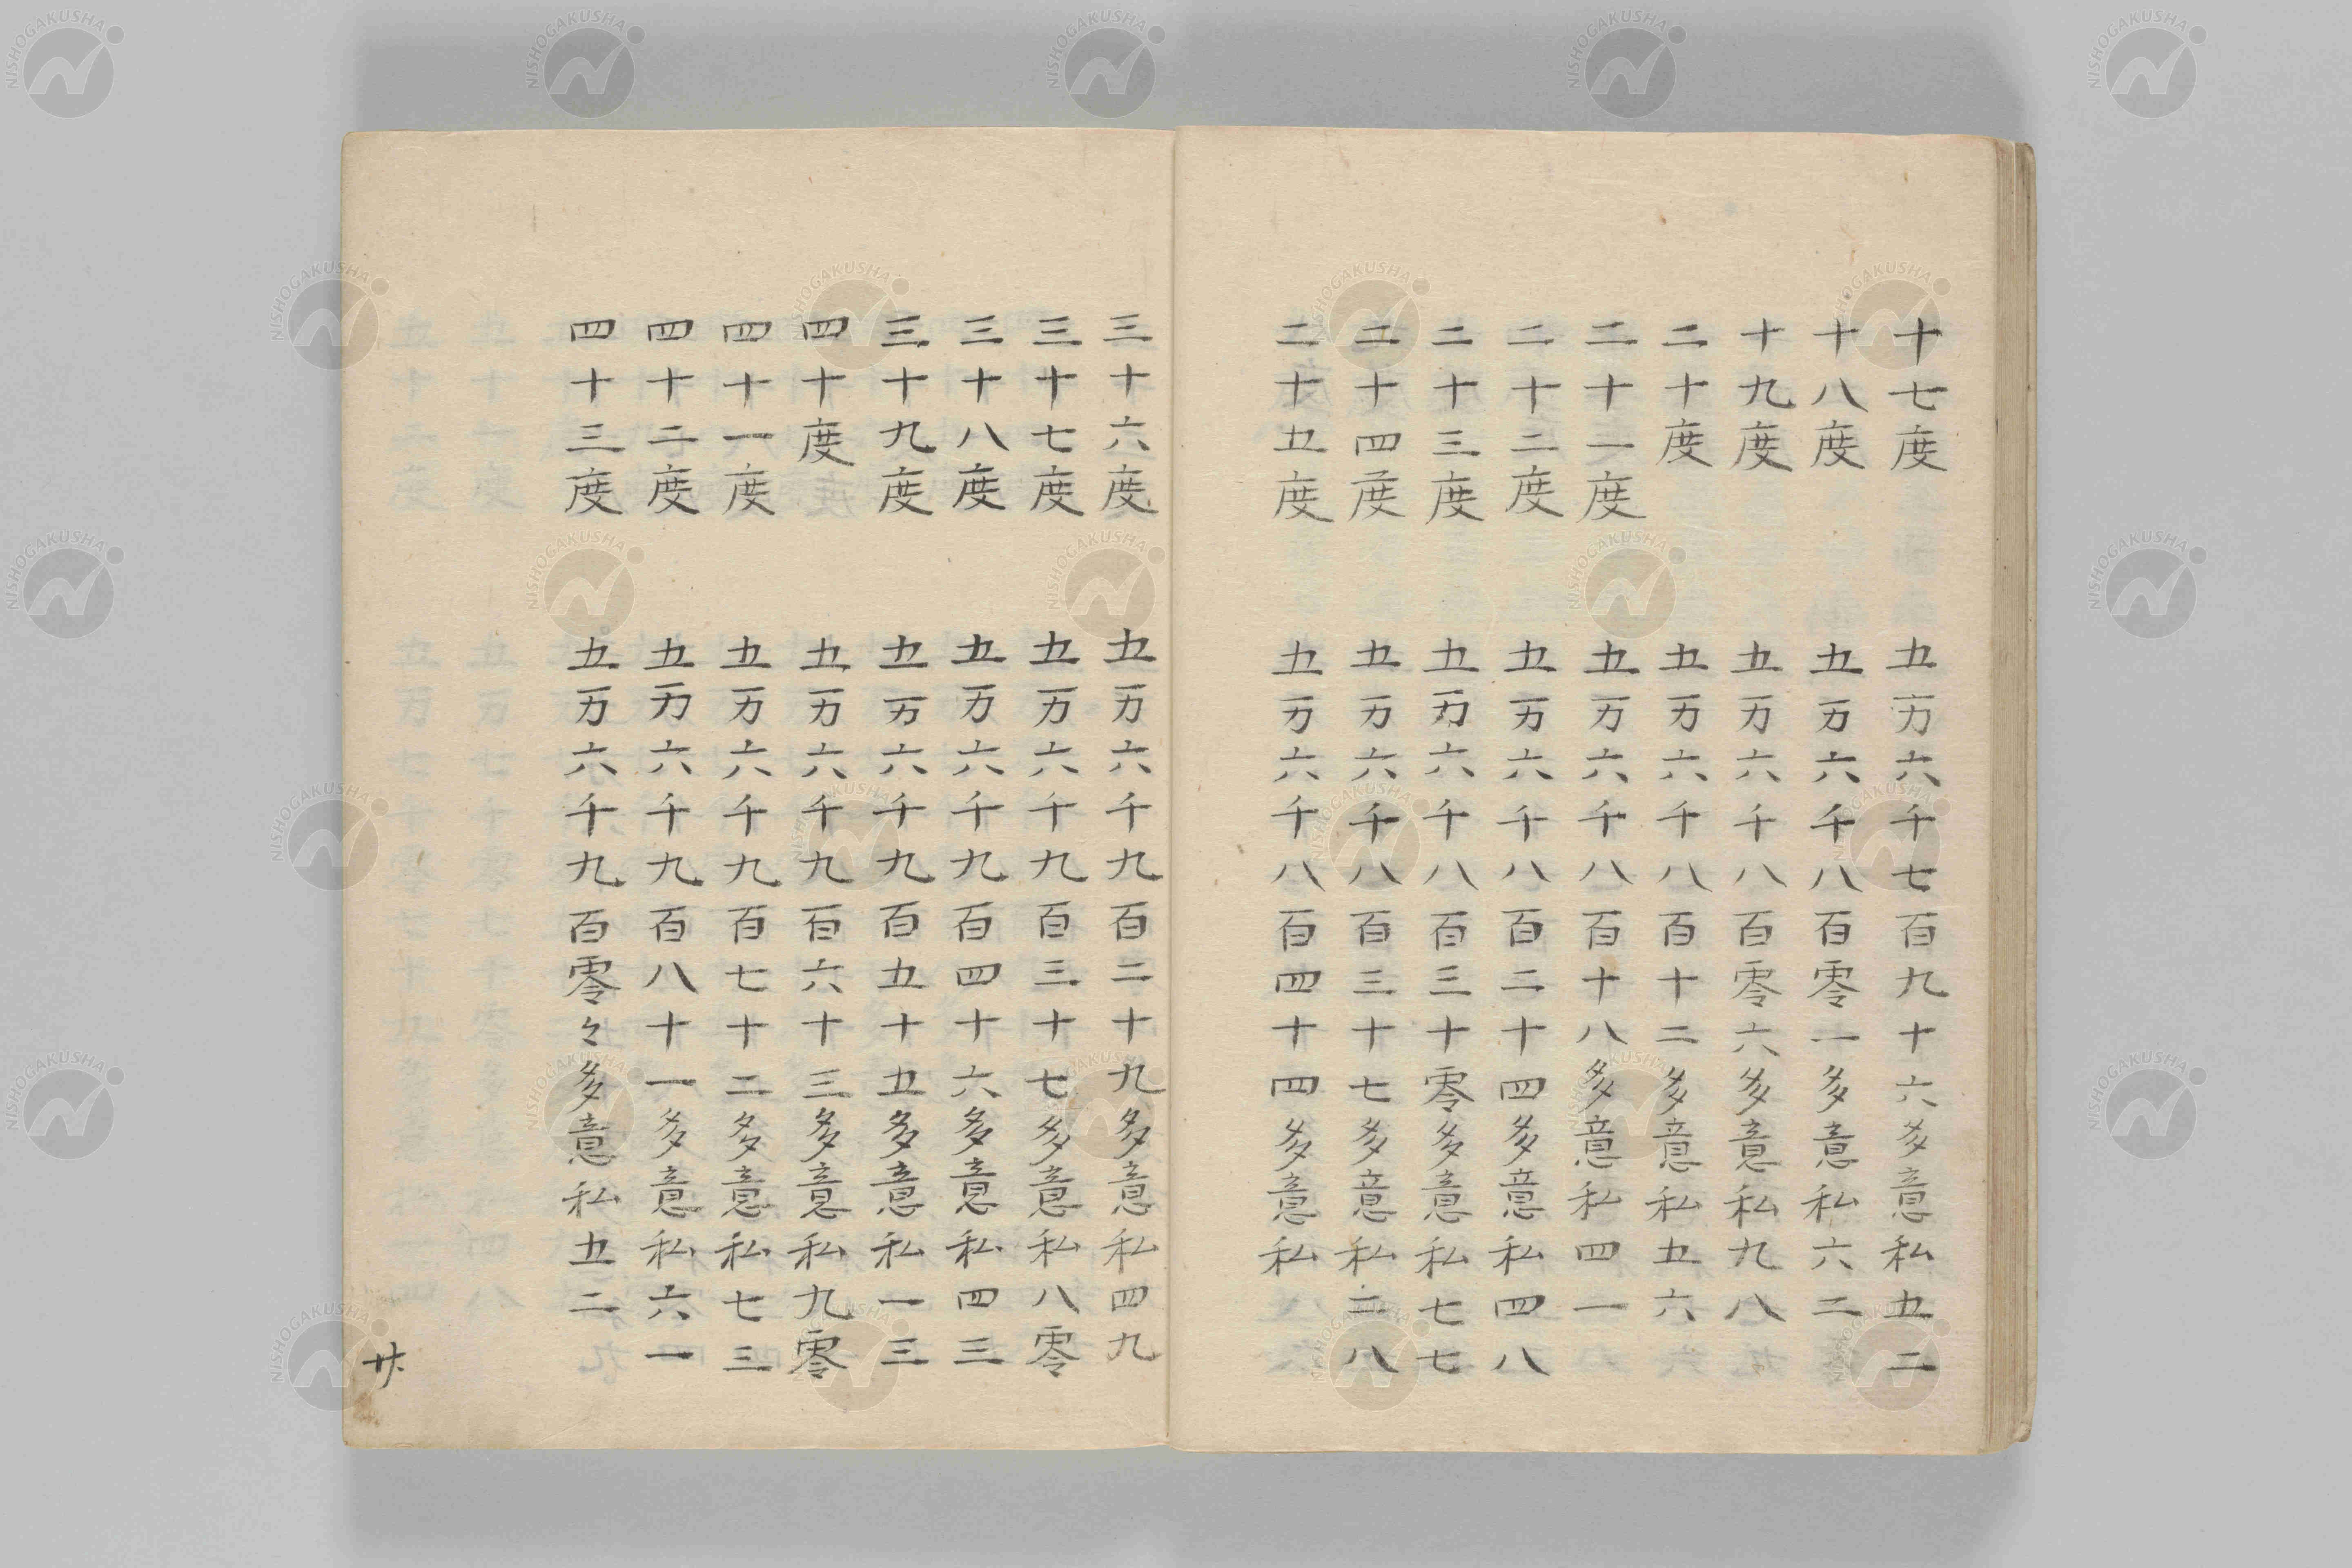 十七度 五万六千七百九十六多意私五二
十八度 五万六千八百零一多意私六二
十九度 五万六千八百零六多意私九八
二十度 五万六千八百十二多意私五六
二十一度 五万六千八百十八多意私四一
二十二度 五万六千八百二十四多意私四八
二十三度 五万六千八百三十零多意私七七
二十四度 五万六千八百三十七多意私二八
二十五度 五万六千八百四十四多意私
三十六度 五万六千九百二十九多意私四九
三十七度 五万六千九百三十七多意私八零
三十八度 五万六千九百四十六多意私四三
三十九度 五万六千九百五十五多意私一三
四十度 五万六千九百六十三多意私九零
四十一度 五万六千九百七十二多意私七三
四十二度 五万六千九百八十一多意私六一
四十三度 五万六千九百零々多意私五二
廿